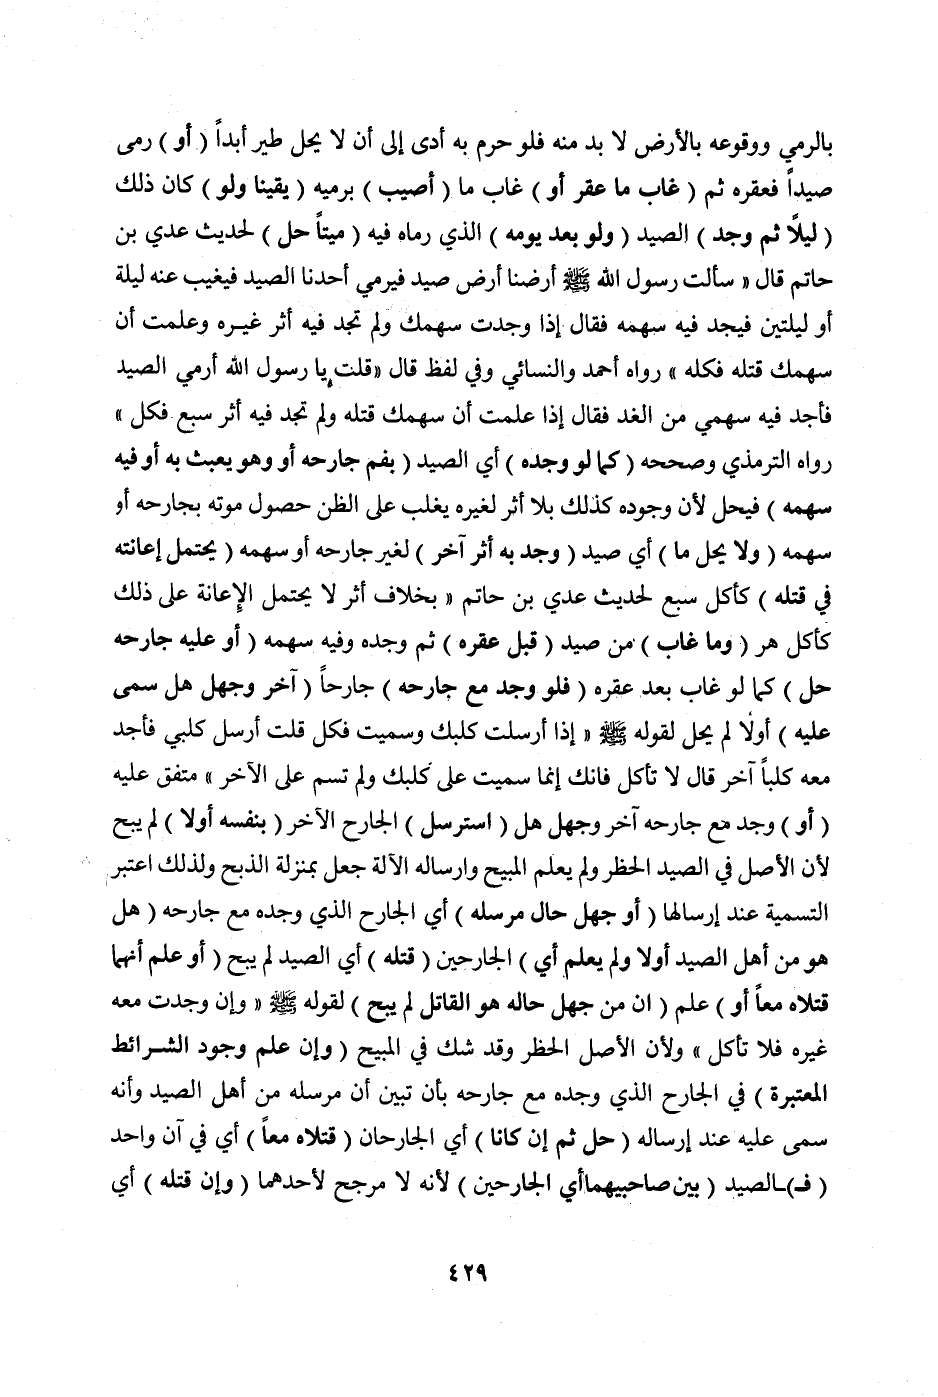 بالرمي ووقوعه بالأرض لا بد منه فلو حرم به أدى إلى أن لا يحل طير أبداً ( أو ) رمى
صيداً فعقره ثم ( غاب ما عقر أو ) غاب ما ( أصيب ) برميه ( يقينا ولو ) كان ذلك
( ليلاً ثم وجد ) الصيد ( ولو بعد يومه ) الذي رماه فيه ( ميتاً حل ) لحديث عدي بن
حاتم قال « سألت رسول الله ﷺ أرضنا أرض صيد فيرمي أحدنا الصيد فيغيب عنه ليلة
أو ليلتين فيجد فيه سهمه فقال إذا وجدت سهمك ولم تجد فيه أثر غيره وعلمت أن
سهمك قتله فكله » رواه أحمد والنسائي وفي لفظ قال «قلت يا رسول الله أرمي الصيد
فأجد فيه سهمي من الغد فقال إذا علمت أن سهمك قتله ولم تجد فيه أثر سبع فكل »
رواه الترمذي وصححه ( كما لو وجده ) أي الصيد ( بفم جارحه أو وهو يعبث به أو فيه
سهمه ) فيحل لأن وجوده كذلك بلا أثر لغيره يغلب على الظن حصول موته بجارحه أو
سهمه ( ولا يحل ما ) أي صيد ( وجد به أثر آخر ) لغير جارحه أو سهمه ( يحتمل إعانته
في قتله ) كأكل سبع لحديث عدي بن حاتم « بخلاف أثر لا يحتمل الإعانة على ذلك
كأكل هر ( وما غاب ) من صيد ( قبل عقره ) ثم وجده وفيه سهمه ( أو عليه جارحه
حل ) كما لو غاب بعد عقره ( فلو وجد مع جارحه ) جارحاً ( آخر وجهل هل سمى
عليه ) أولا لم يحل لقوله ﷺ « إذا أرسلت كلبك وسميت فكل قلت أرسل كلبي فأجد
معه كلباً آخر قال لا تأكل فانك إنما سميت على كلبك ولم تسم على الآخر » متفق عليه
( أو ) وجد مع جارحه آخر وجهل هل ( استرسل ) الجارح الآخر ( بنفسه أولا ) لم يبح
لأن الأصل في الصيد الحظر ولم يعلم المبيح وارساله الآلة جعل بمنزلة الذبح ولذلك اعتبر
التسمية عند إرسالها ( أو جهل حال مرسله ) أي الجارح الذي وجده مع جارحه ( هل
هو من أهل الصيد أولا ولم يعلم أي ) الجارحين ( قتله ) أي الصيد لم يبح ( أو علم أنهما
قتلاه معاً أو ) علم ( ان من جهل حاله هو القاتل لم يبح ) لقوله ﷺ « وإن وجدت معه
غيره فلا تأكل » ولأن الأصل الحظر وقد شك في المبيح ( وإن علم وجود الشرائط
المعتبرة ) في الجارح الذي وجده مع جارحه بأن تبين أن مرسله من أهل الصيد وأنه
سمى عليه عند إرساله ( حل ثم إن كانا ) أي الجارحان ( قتلاه معاً ) أي في آن واحد
( فـ)ـالصيد ( بين صاحبيهما أي الجارحين ) لأنه لا مرجح لأحدهما ( وإن قتله ) أي
٤٢٩